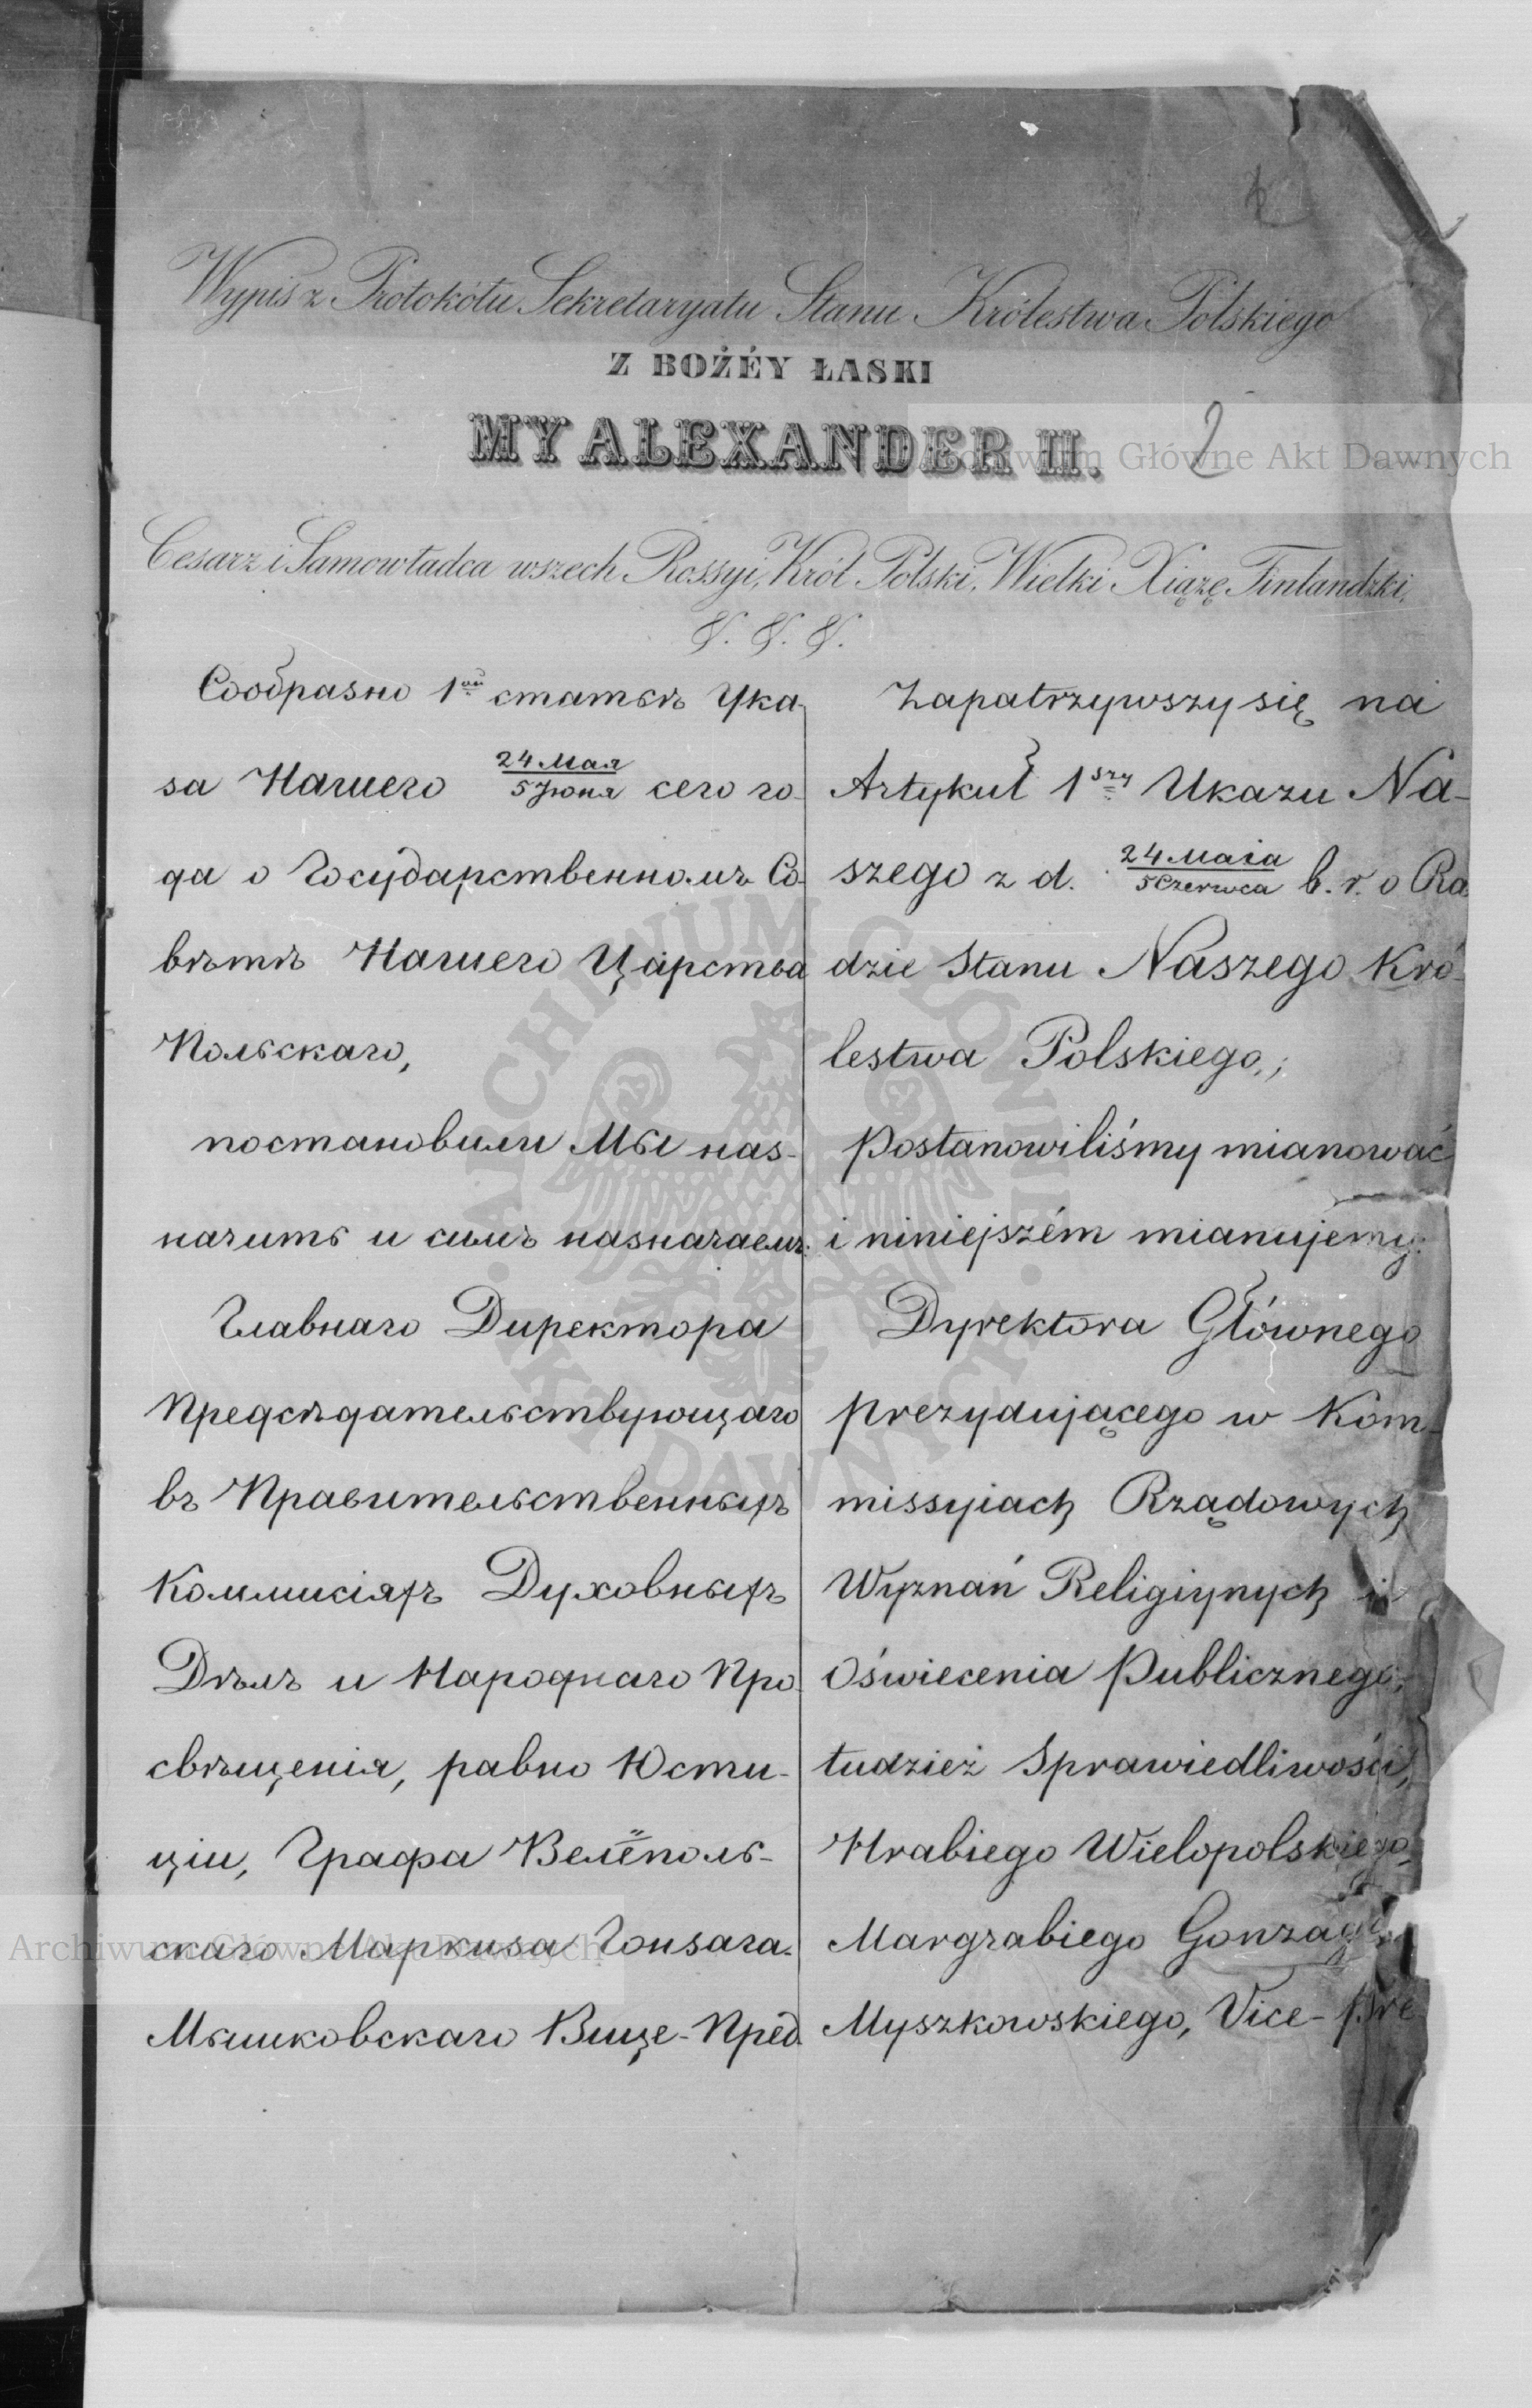 Wypis z Protokółu Sekretaryatu Stanu Królestwa Polskiego
Z BOŻÉY ŁASKI
MY ALEXANDER II.
2
Cesarz i Samowładca wszech Rossyi, Król Polski, Wielki Xiążę Finlandzki,
&. &. &.
Сообразно 1ой статьѣ Ука-
за Нашего 24 Мая / 5 Іюня сего го-
да о Государственномъ Со-
вѣтѣ Нашего Царства
Польскаго,
постановили Мы наз-
начить и симъ назначаемъ:
Главнаго Директора
Предсѣдательствующаго
въ Правительственныхъ
Коммисіяхъ Духовныхъ
Дѣлъ и Народнаго Про-
свѣщенія, равно Юсти-
ціи, Графа Велёполь-
скаго Маркиза Гонзага-
Мышковскаго Вице-Пред-
Zapatrzywszy się na
Artykuł 1szy Ukazu Na-
szego z d. 24 Maia / 5 Czerwca b. r. o Ra-
dzie Stanu Naszego Kró-
lestwa Polskiego,;
Postanowiliśmy mianować
i niniejszém mianujemy:
Dyrektora Głównego
Prezydującego w Kom-
missyiach Rządowych
Wyznań Religiynych i
Oświecenia Publicznego,
tudzież Sprawiedliwości,
Hrabiego Wielopolskiego
Margrabiego Gonzagę
Myszkowskiego, Vice-Pre
Archiwum Główne Akt Dawnych
ARCHIWUM GŁÓWNE AKT DAWNYCH
Archiwum Główne Akt Dawnych